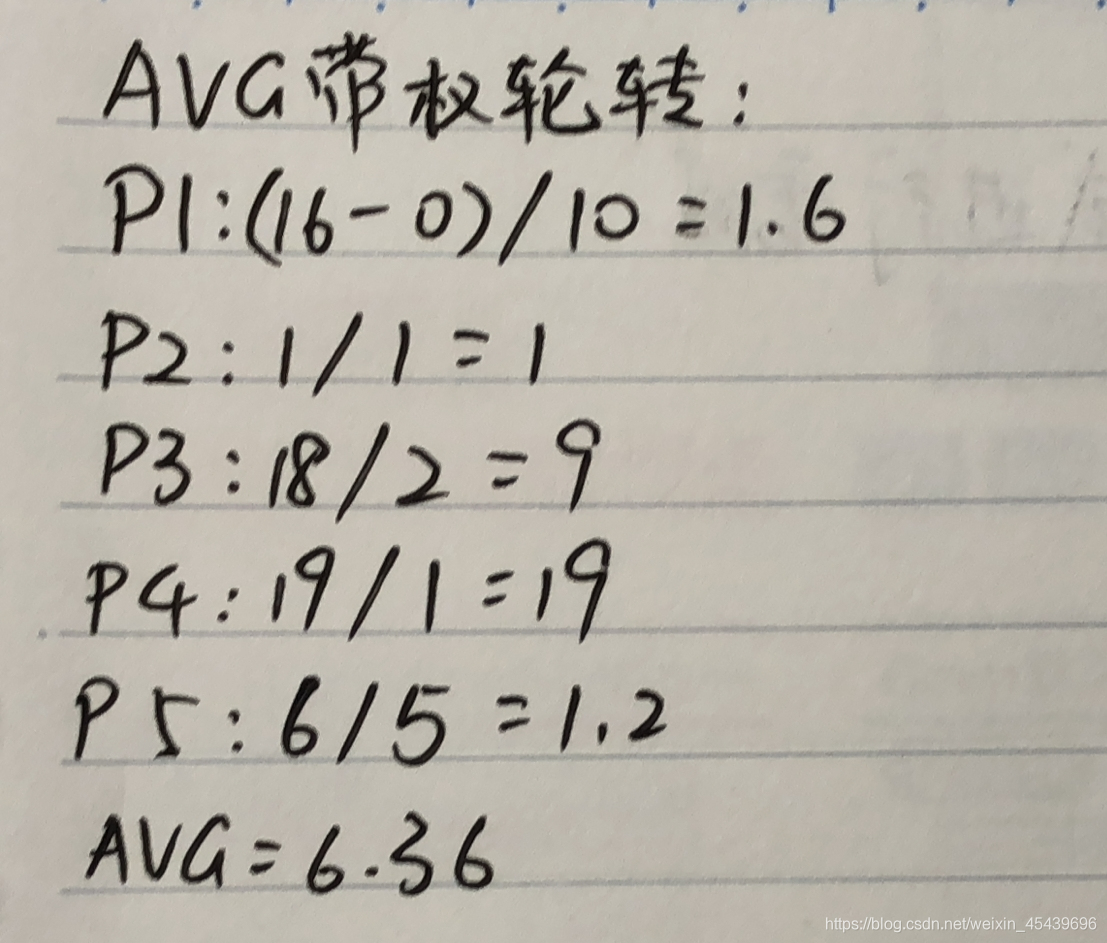 AVG带权轮转:
P1:(16-0)/10=1.6
P2:1/1=1
P3:18/2=9
P4:19/1=19
P5:6/5=1.2
AVG=6.36
https://blog.csdn.net/weixin_45439696